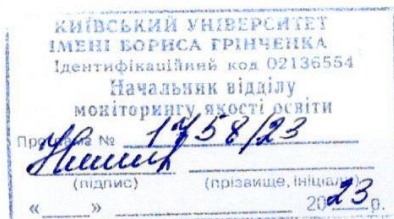 КИЇВСЬКИЙ УНІВЕРСИТЕТ
ІМЕНІ БОРИСА ГРІНЧЕНКА
Ідентифікаційний код 02136554
Начальник відділу
моніторингу якості освіти
Програма № 1758/23
(підпис) (прізвище, ініціали)
« » 2023 р.